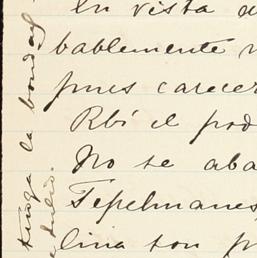 En vista d
bablemente n
pues carecer
Rbí el pod
No se aba
Tepelmanes
lina son p
tenga la bondad
e Julio.